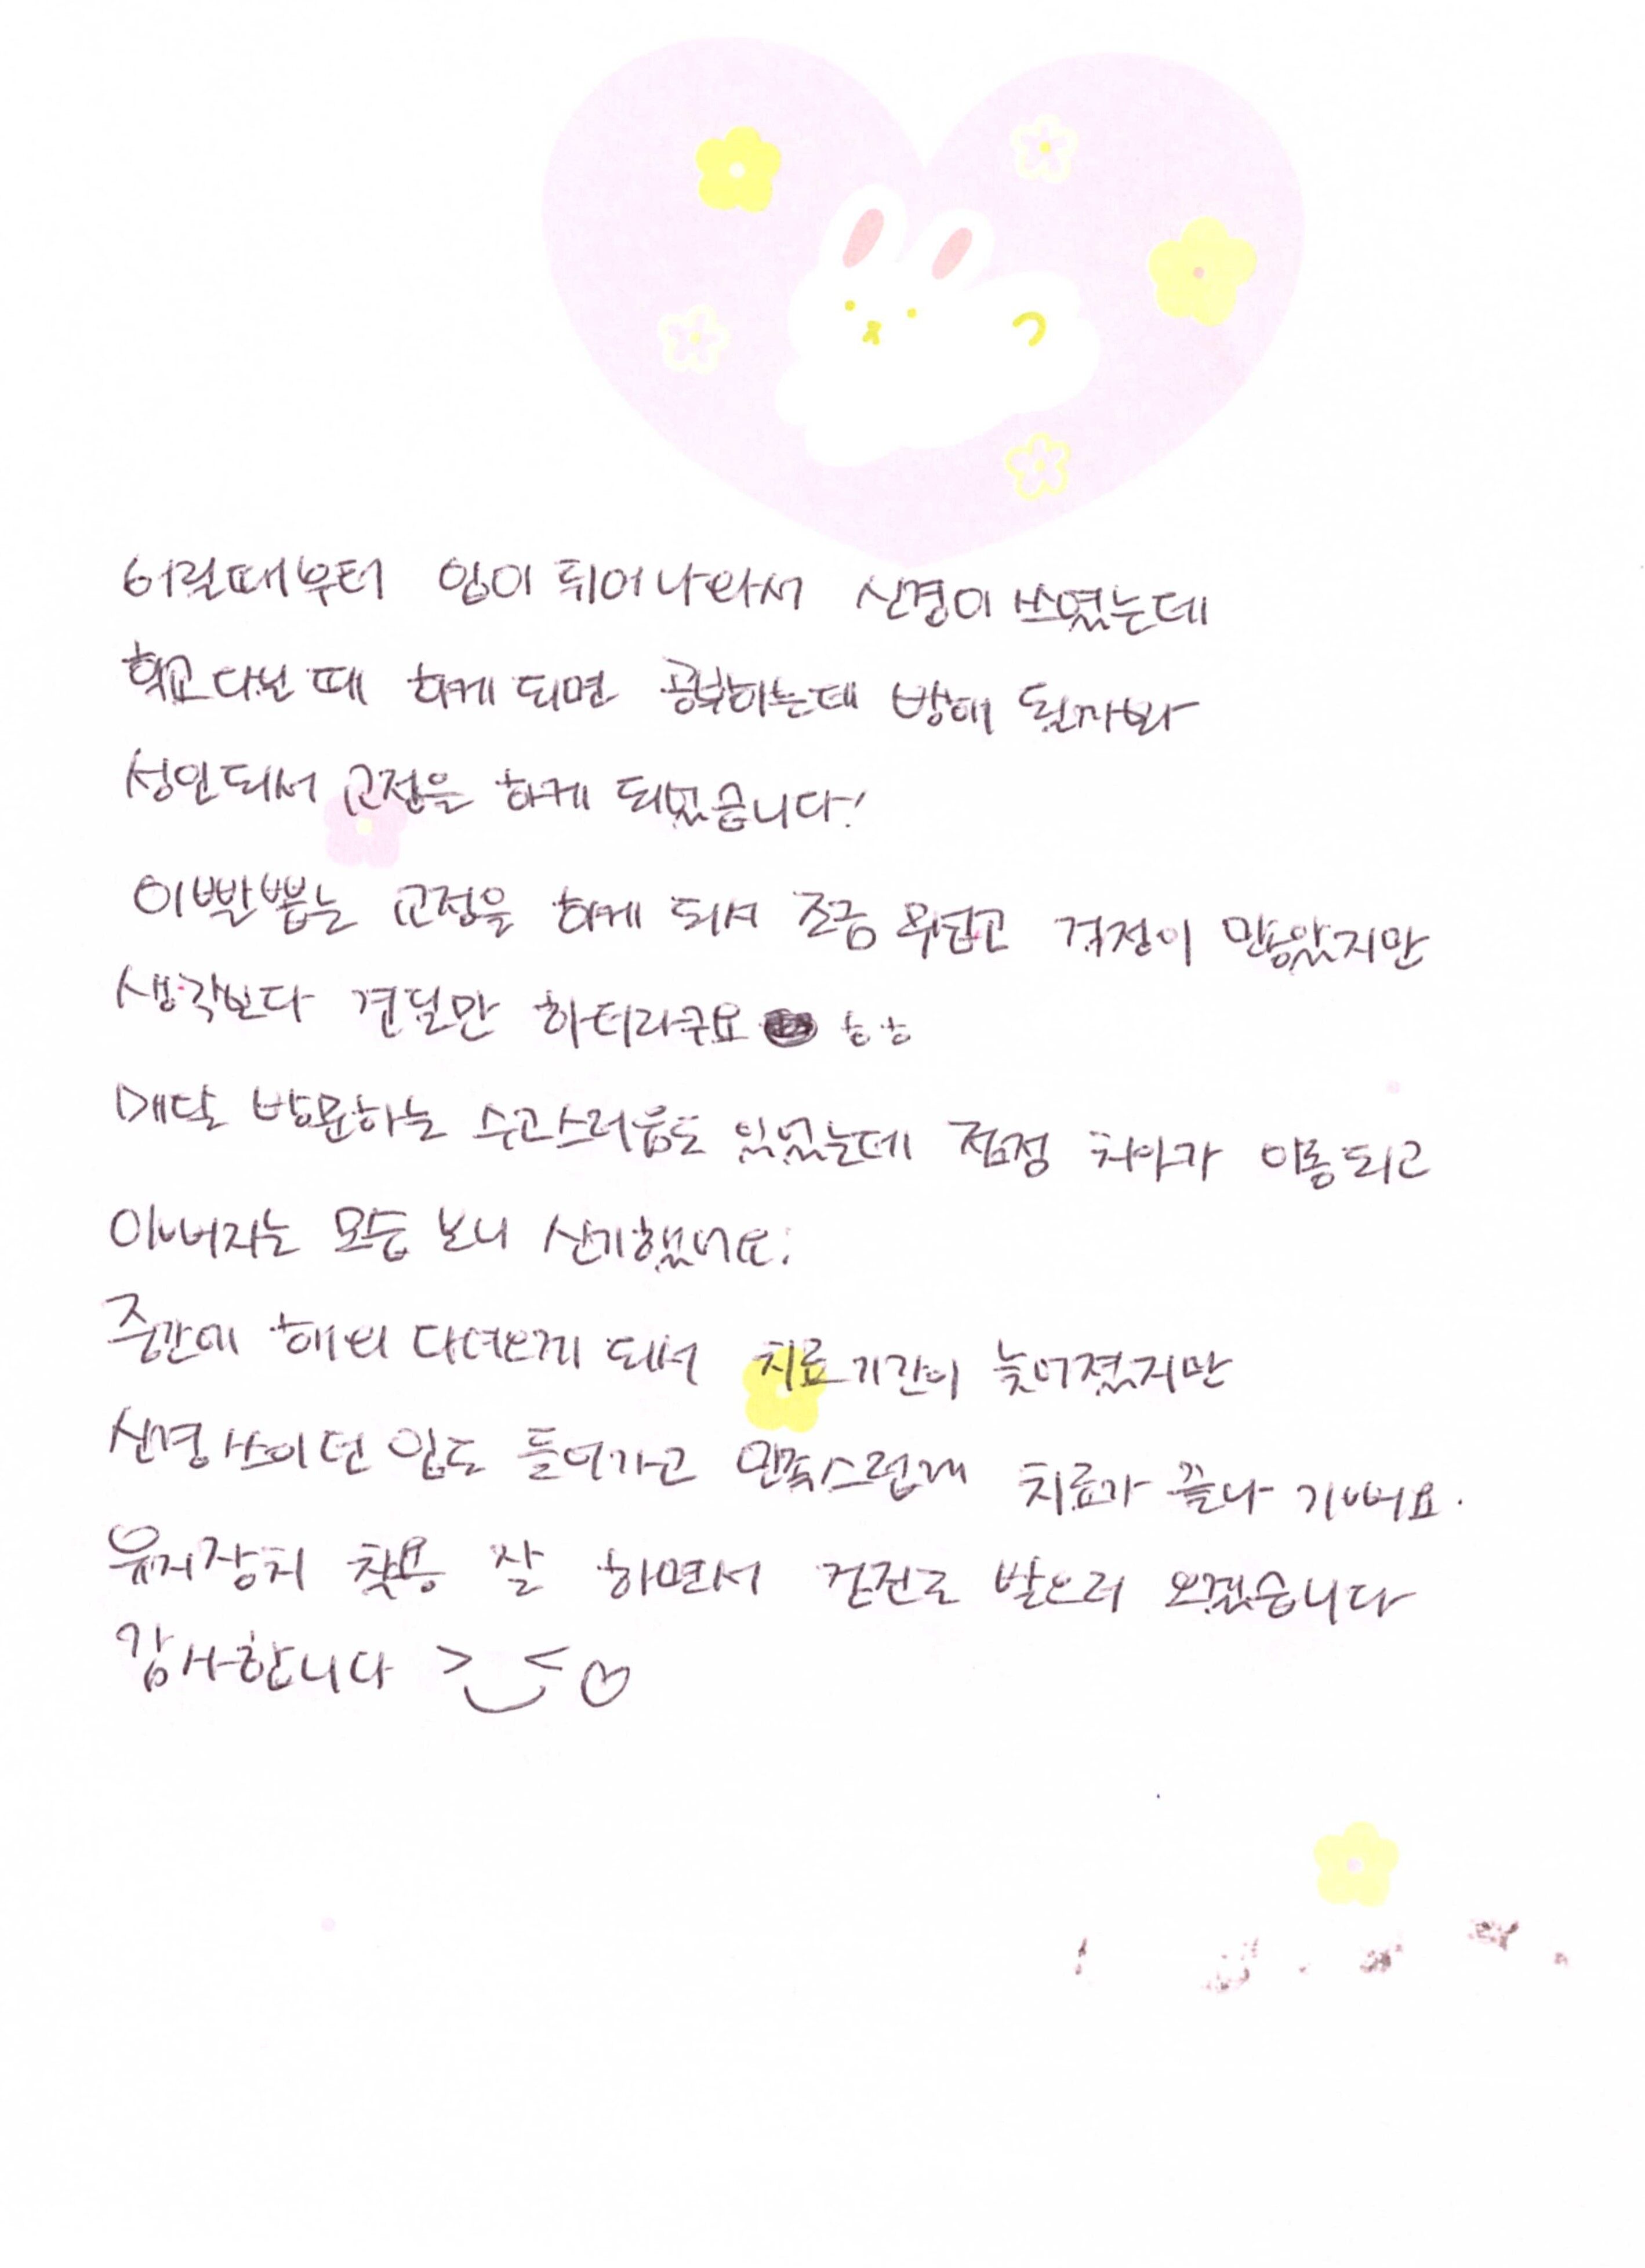 어릴때부터 입이 튀어나와서 신경이 쓰였는데
학교다닐 때 하게 되면 공부하는데 방해 될까봐
성인되서 교정을 하게 되었습니다!
이빨뽑는 교정을 하게 되서 조금 무섭고 걱정이 많았지만
생각보다 견딜만 하더라구요 ㅎㅎ
매달 방문하는 수고스러움도 있었는데 점점 치아가 이동되고
이뻐지는 모습 보니 신기했어요.
중간에 해외 다녀오게 되서 치료기간이 늦어졌지만
신경쓰이던 입도 들어가고 만족스럽게 치료가 끝나 기뻐요.
유지장치 착용 잘 하면서 검진도 받으러 오겠습니다
감사합니다 >‿< ♡